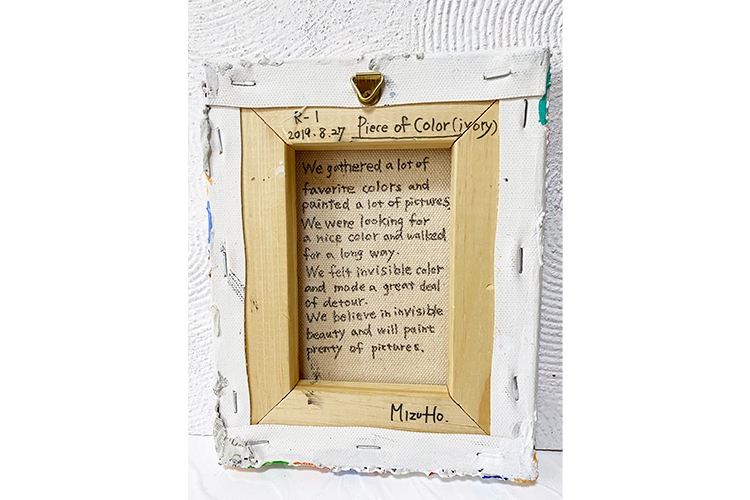 R-1
2019.8.27 Piece of Color (ivory)
We gathered a lot of
favorite colors and
painted a lot of pictures.
We were looking for
a nice color and walked
for a long way.
We felt invisible color
and made a great deal
of detour.
We believe in invisible
beauty and will paint
prenty of pictures.
MIzuHo.